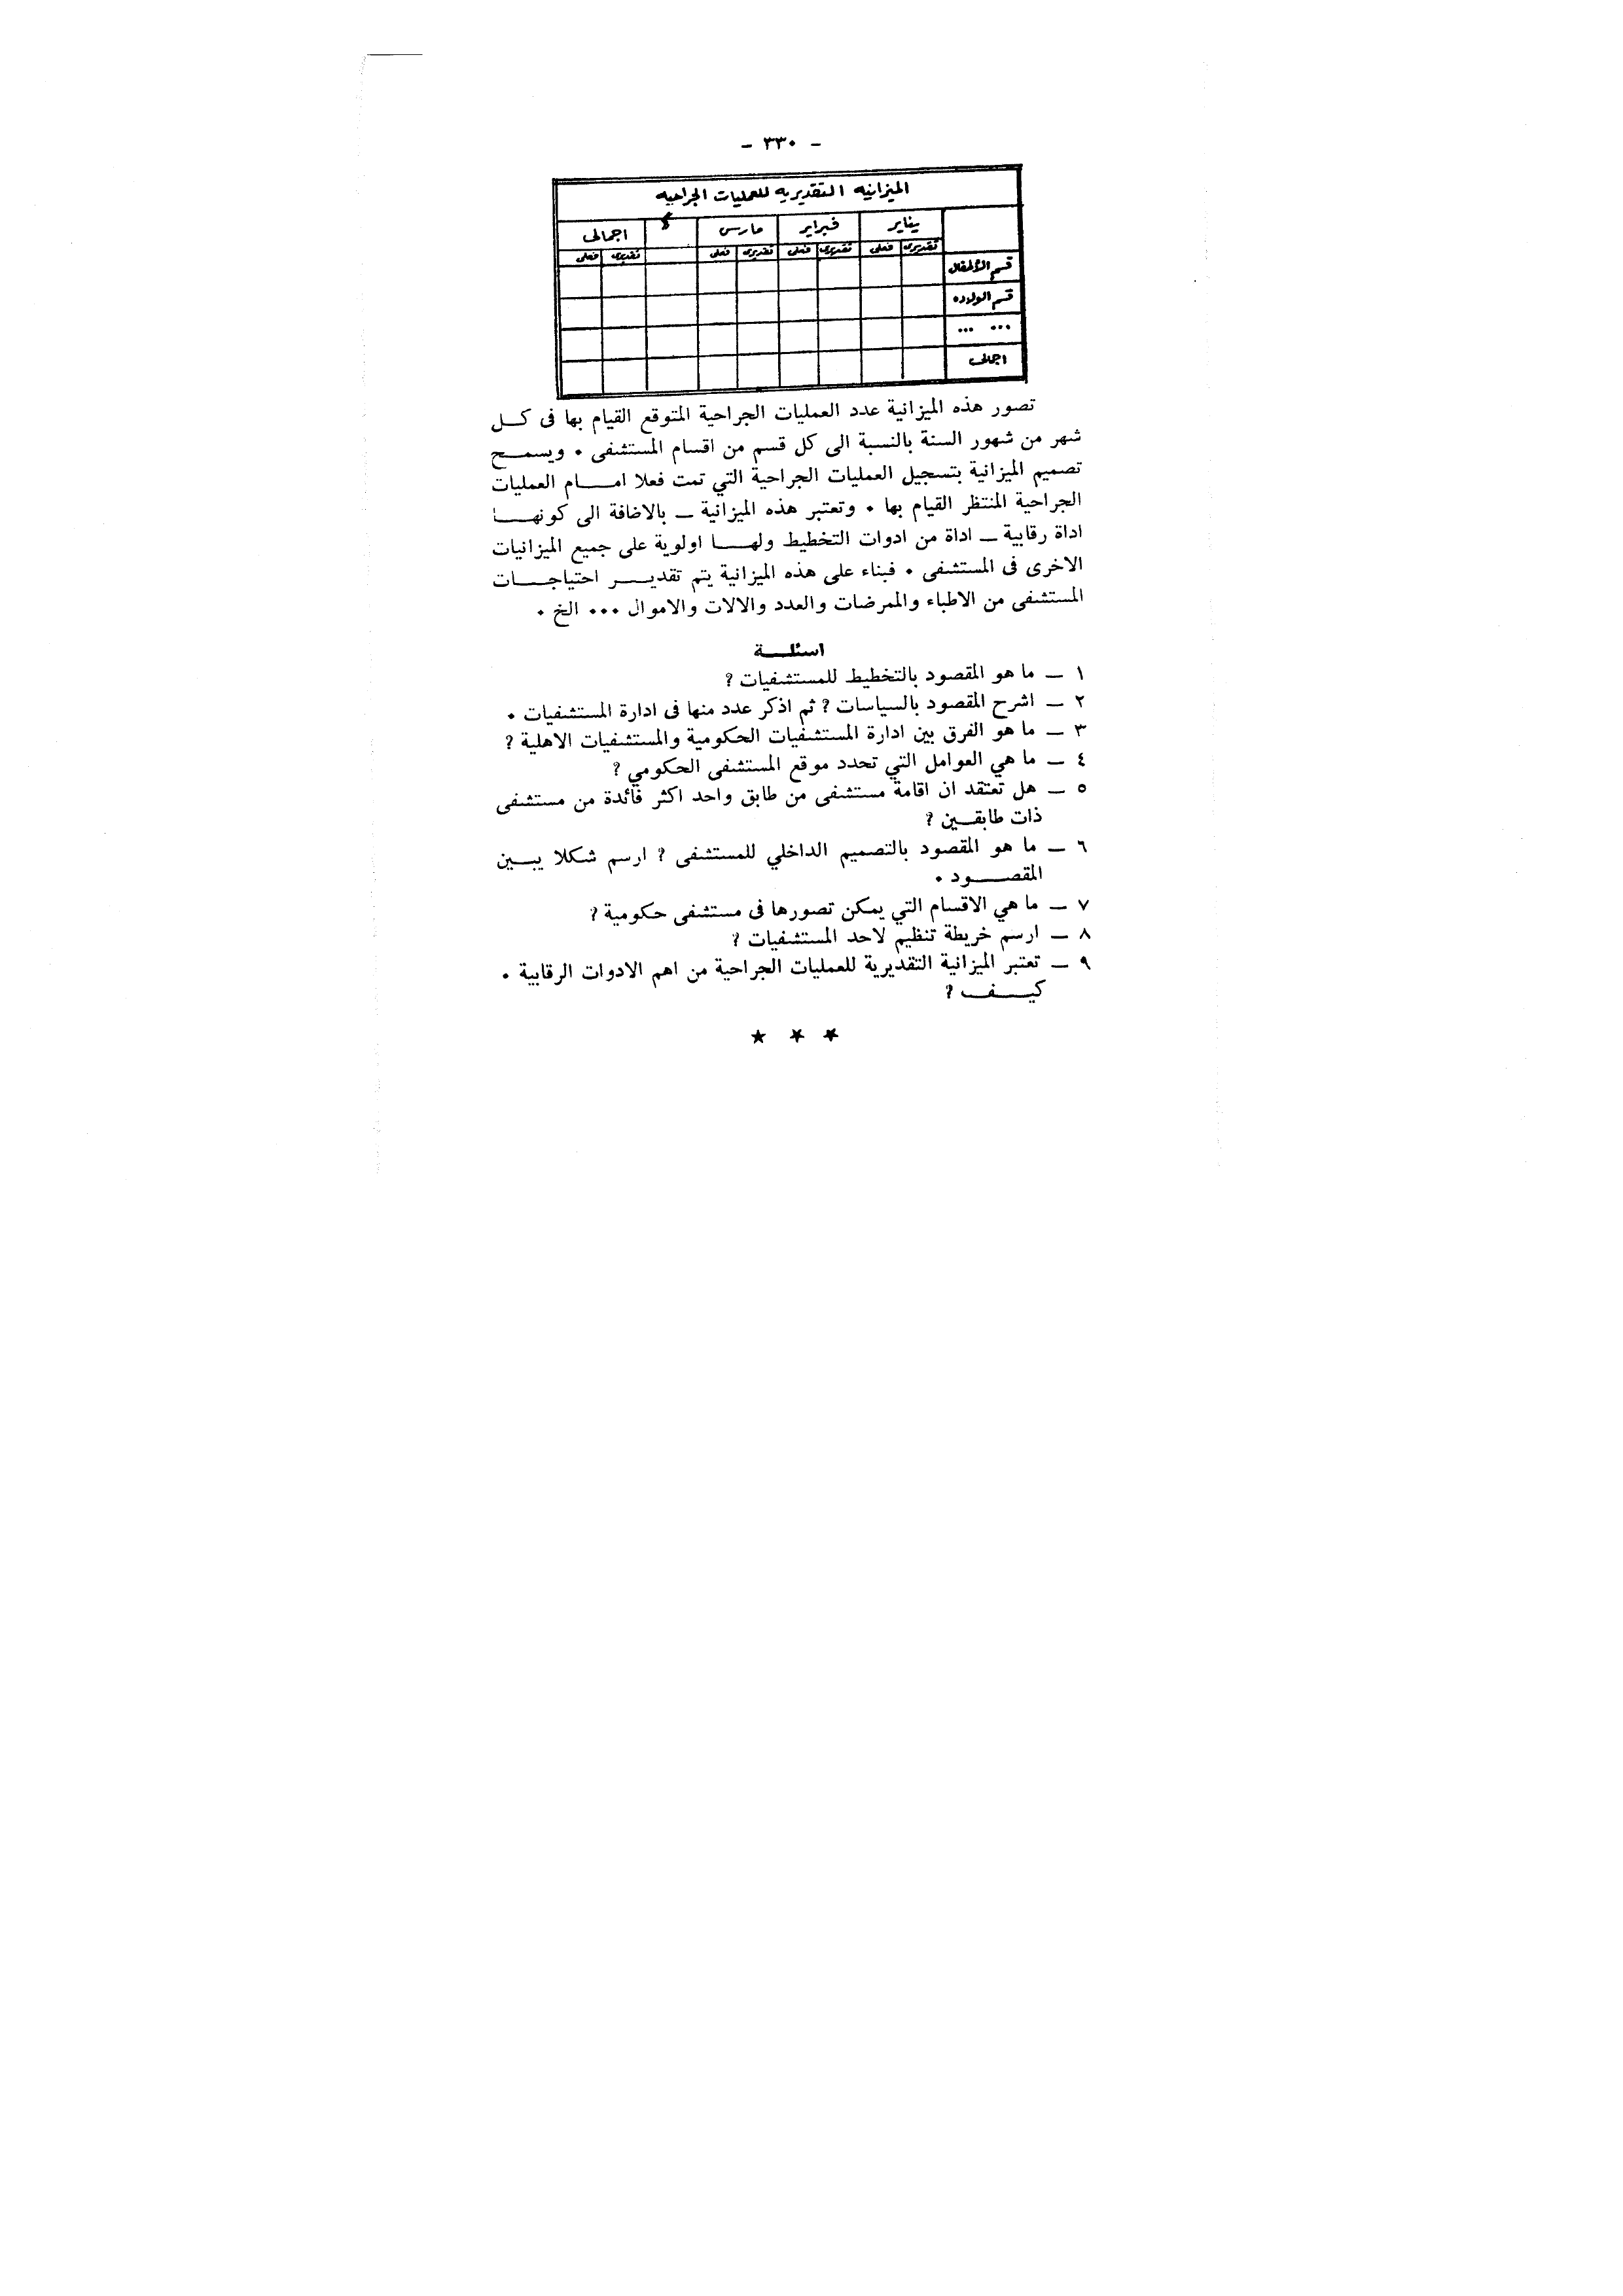 - ٣٣٠ -
الميزانيه التقديريه للعمليات الجراحيه
يناير فبراير مارس اجمالى
تقديرى فعلى تقديرى فعلى تقديرى فعلى تقديرى فعلى
قسم الأطفال
قسم الولاده
... ...
اجمالى
تصور هذه الميزانية عدد العمليات الجراحية المتوقع القيام بها فى كــل
شهر من شهور السنة بالنسبة الى كل قسم من اقسام المستشفى ٠ ويسمــح
تصميم الميزانية بتسجيل العمليات الجراحية التي تمت فعلا امــــام العمليات
الجراحية المنتظر القيام بها ٠ وتعتبر هذه الميزانية ــ بالاضافة الى كونهــــا
اداة رقابية ــ اداة من ادوات التخطيط ولهــــا اولوية على جميع الميزانيات
الاخرى فى المستشفى ٠ فبناء على هذه الميزانية يتم تقديــــر احتياجــــات
المستشفى من الاطباء والممرضات والعدد والالات والاموال ٠٠٠ الخ ٠
اسئلــة
١ ــ ما هو المقصود بالتخطيط للمستشفيات ؟
٢ ــ اشرح المقصود بالسياسات ؟ ثم اذكر عدد منها فى ادارة المستشفيات ٠
٣ ــ ما هو الفرق بين ادارة المستشفيات الحكومية والمستشفيات الاهلية ؟
٤ ــ ما هي العوامل التي تحدد موقع المستشفى الحكومي ؟
٥ ــ هل تعتقد ان اقامة مستشفى من طابق واحد اكثر فائدة من مستشفى
ذات طابقــين ؟
٦ ــ ما هو المقصود بالتصميم الداخلي للمستشفى ؟ ارسم شكلا يبــين
المقصــــود ٠
٧ ــ ما هي الاقسام التي يمكن تصورها فى مستشفى حكومية ؟
٨ ــ ارسم خريطة تنظيم لاحد المستشفيات ؟
٩ ــ تعتبر الميزانية التقديرية للعمليات الجراحية من اهم الادوات الرقابية ٠
كيــــف ؟
★ ★ ★